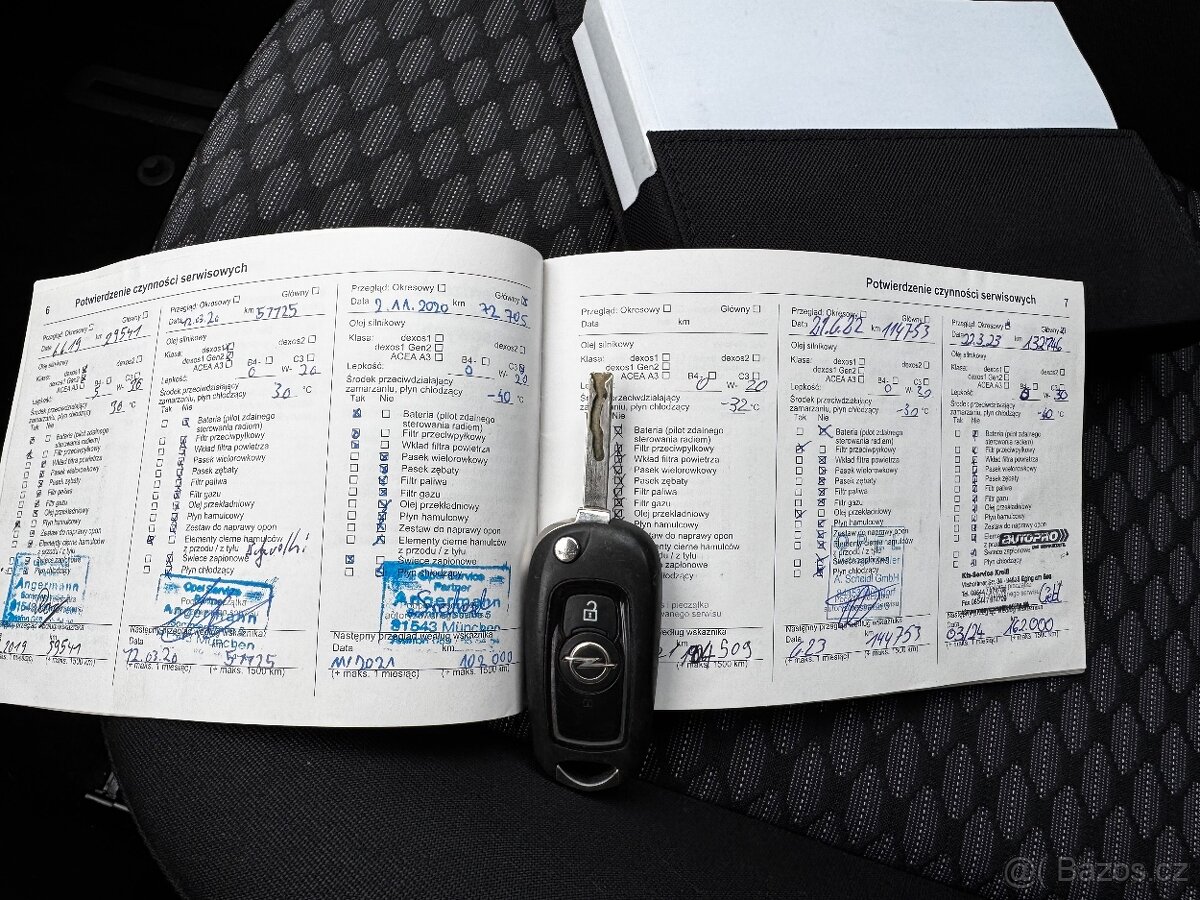 6 Potwierdzenie czynności serwisowych
Przegląd: Okresowy Główny
Data 6.6.19 km 29541
Olej silnikowy
Klasa: dexos1 dexos2
dexos1 Gen2
ACEA A3 B4- C3
Lepkość: W-
Środek przeciwdziałający
zamarzaniu, płyn chłodzący 30 °C
Tak Nie
Bateria (pilot zdalnego
sterowania radiem)
Filtr przeciwpyłkowy
Wkład filtra powietrza
Pasek wielorowkowy
Pasek zębaty
Filtr paliwa
Filtr gazu
Olej przekładniowy
Płyn hamulcowy
Zestaw do naprawy opon
Elementy cierne hamulców
z przodu / z tyłu
Świece zapłonowe
Płyn chłodzący
Angermann
2019 59541
(+ maks. 1500 km)
Przegląd: Okresowy Główny
Data 12.03.20 km 57725
Olej silnikowy
Klasa: dexos1 dexos2
dexos1 Gen2
ACEA A3 B4- C3
Lepkość: 0 W- 20
Środek przeciwdziałający
zamarzaniu, płyn chłodzący 30 °C
Tak Nie
Bateria (pilot zdalnego
sterowania radiem)
Filtr przeciwpyłkowy
Wkład filtra powietrza
Pasek wielorowkowy
Pasek zębaty
Filtr paliwa
Filtr gazu
Olej przekładniowy
Płyn hamulcowy
Zestaw do naprawy opon
Elementy cierne hamulców
z przodu / z tyłu
Świece zapłonowe
Płyn chłodzący
Opel Service
Angermann
München
Następny przegląd według wskaźnika
Data
12.03.20 57725
(+ maks. 1 miesiąc) (+ maks. 1500 km)
Przegląd: Okresowy Główny
Data 2.11.2020 km 72.705
Olej silnikowy
Klasa: dexos1 dexos2
dexos1 Gen2
ACEA A3 B4- C3
Lepkość: 0 W- 20
Środek przeciwdziałający
zamarzaniu, płyn chłodzący -40 °C
Tak Nie
Bateria (pilot zdalnego
sterowania radiem)
Filtr przeciwpyłkowy
Wkład filtra powietrza
Pasek wielorowkowy
Pasek zębaty
Filtr paliwa
Filtr gazu
Olej przekładniowy
Płyn hamulcowy
Zestaw do naprawy opon
Elementy cierne hamulców
z przodu / z tyłu
Świece zapłonowe
Płyn chłodzący
Opel Service
Partner
Angermann
81543 München
Następny przegląd według wskaźnika
Data km
11/2021 102.000
(+ maks. 1 miesiąc) (+ maks. 1500 km)
Potwierdzenie czynności serwisowych 7
Przegląd: Okresowy Główny
Data km
Olej silnikowy
Klasa: dexos1 dexos2
dexos1 Gen2
ACEA A3 B4- C3
0 W- 20
przeciwdziałający
płyn chłodzący -32 °C
Nie
Bateria (pilot zdalnego
sterowania radiem)
Filtr przeciwpyłkowy
Wkład filtra powietrza
Pasek wielorowkowy
Pasek zębaty
Filtr paliwa
Filtr gazu
Olej przekładniowy
Płyn hamulcowy
Zestaw do naprawy opon
Elementy cierne hamulców
z przodu / z tyłu
Świece zapłonowe
Płyn chłodzący
i pieczątka
serwisu
według wskaźnika
509
(+ maks. 1500 km)
Przegląd: Okresowy Główny
Data km 114753
Olej silnikowy
Klasa: dexos1 dexos2
dexos1 Gen2
ACEA A3 B4- C3
Lepkość: 0 W- 30
Środek przeciwdziałający
zamarzaniu, płyn chłodzący -30 °C
Tak Nie
Bateria (pilot zdalnego
sterowania radiem)
Filtr przeciwpyłkowy
Wkład filtra powietrza
Pasek wielorowkowy
Pasek zębaty
Filtr paliwa
Filtr gazu
Olej przekładniowy
Płyn hamulcowy
Zestaw do naprawy opon
Elementy cierne hamulców
z przodu / z tyłu
Świece zapłonowe
Płyn chłodzący
A. Scheidl GmbH
Następny przegląd według wskaźnika
Data km
6.23 144753
(+ maks. 1 miesiąc) (+ maks. 1500 km)
Przegląd: Okresowy Główny
Data 22.3.23 km 132746
Olej silnikowy
Klasa: dexos1 dexos2
dexos1 Gen2
ACEA A3 B4- C3
Lepkość: 0 W- 30
Środek przeciwdziałający
zamarzaniu, płyn chłodzący -40 °C
Tak Nie
Bateria (pilot zdalnego
sterowania radiem)
Filtr przeciwpyłkowy
Wkład filtra powietrza
Pasek wielorowkowy
Pasek zębaty
Filtr paliwa
Filtr gazu
Olej przekładniowy
Płyn hamulcowy
Zestaw do naprawy opon
Elementy cierne hamulców
z przodu / z tyłu
Świece zapłonowe
Płyn chłodzący
AUTOPRO
Kfz-Service Kreiß
Następny przegląd według wskaźnika
Data km
03/24 162000
(+ maks. 1 miesiąc) (+ maks. 1500 km)
@( Bazos.cz